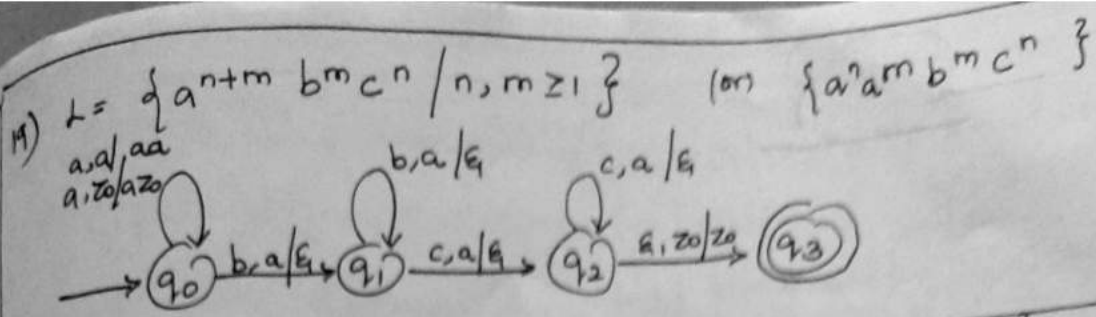 19) L = { aⁿ⁺ᵐ bᵐ cⁿ / n, m ≥ 1 } (or) { aⁿ aᵐ bᵐ cⁿ }
a, a/, aa
a, z₀/az₀
b, a/ε
c, a/ε
q₀ b, a/ε q₁ c, a/ε q₂ ε, z₀/z₀ q₃